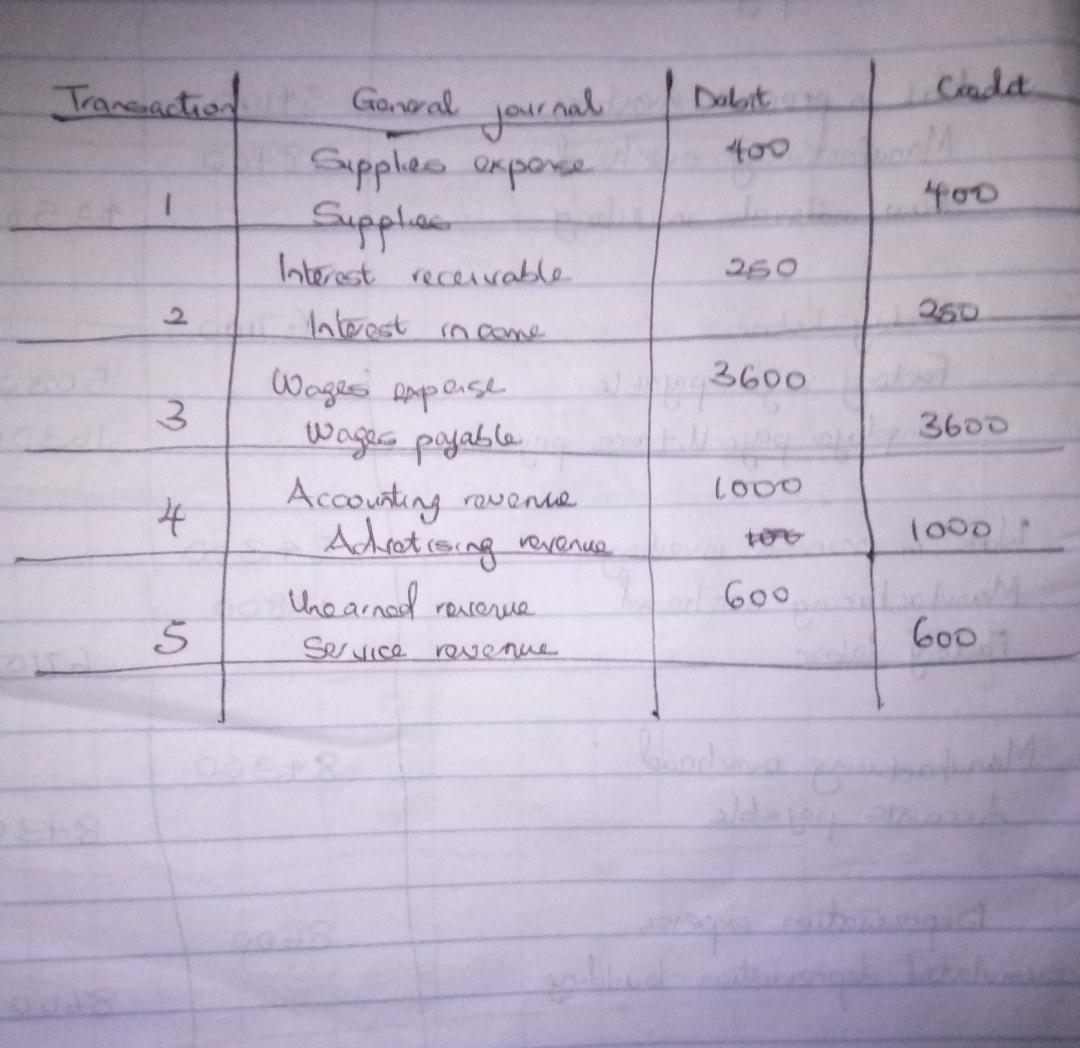 Transaction General journal Debit Credit
Supplies expense 400
1 Supplies 400
Interest receivable 250
2 Interest income 250
Wages expense 3600
3 Wages payable 3600
Accounting revenue 1000
4 Advertising revenue 1000
Unearned revenue 600
5 Service revenue 600